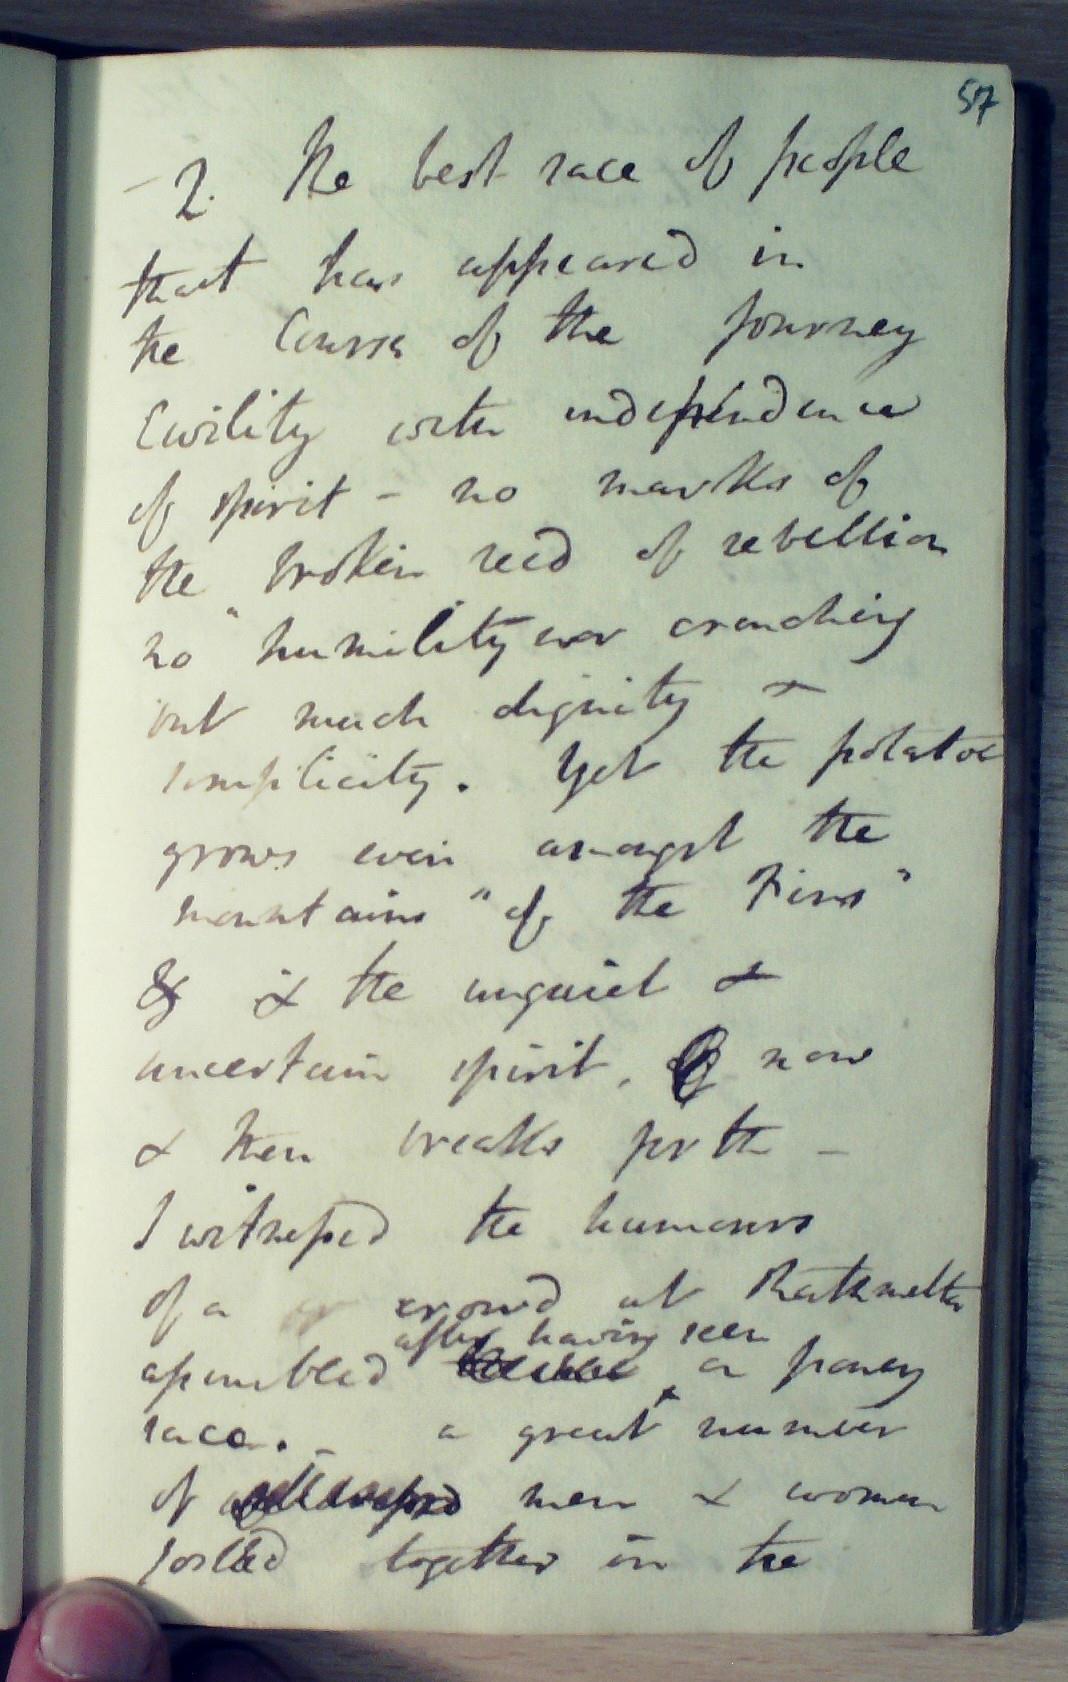 57
- 2. The best race of people
that has appeared in
the Course of the journey
Civility with independence
of spirit - no marks of
the broken reed of rebellion
no " humility nor crouching
but much dignity &
simplicity. Yet the potatoe
grows even amongst the
mountains " of the Finns "
& the unquiet &
uncertain spirit, now
& then breaks forth -
I witnessed the humours
of a crowd at Rathmelton
after having seen
assembled a poney
race. - a great number
of men & women
jostled together in the